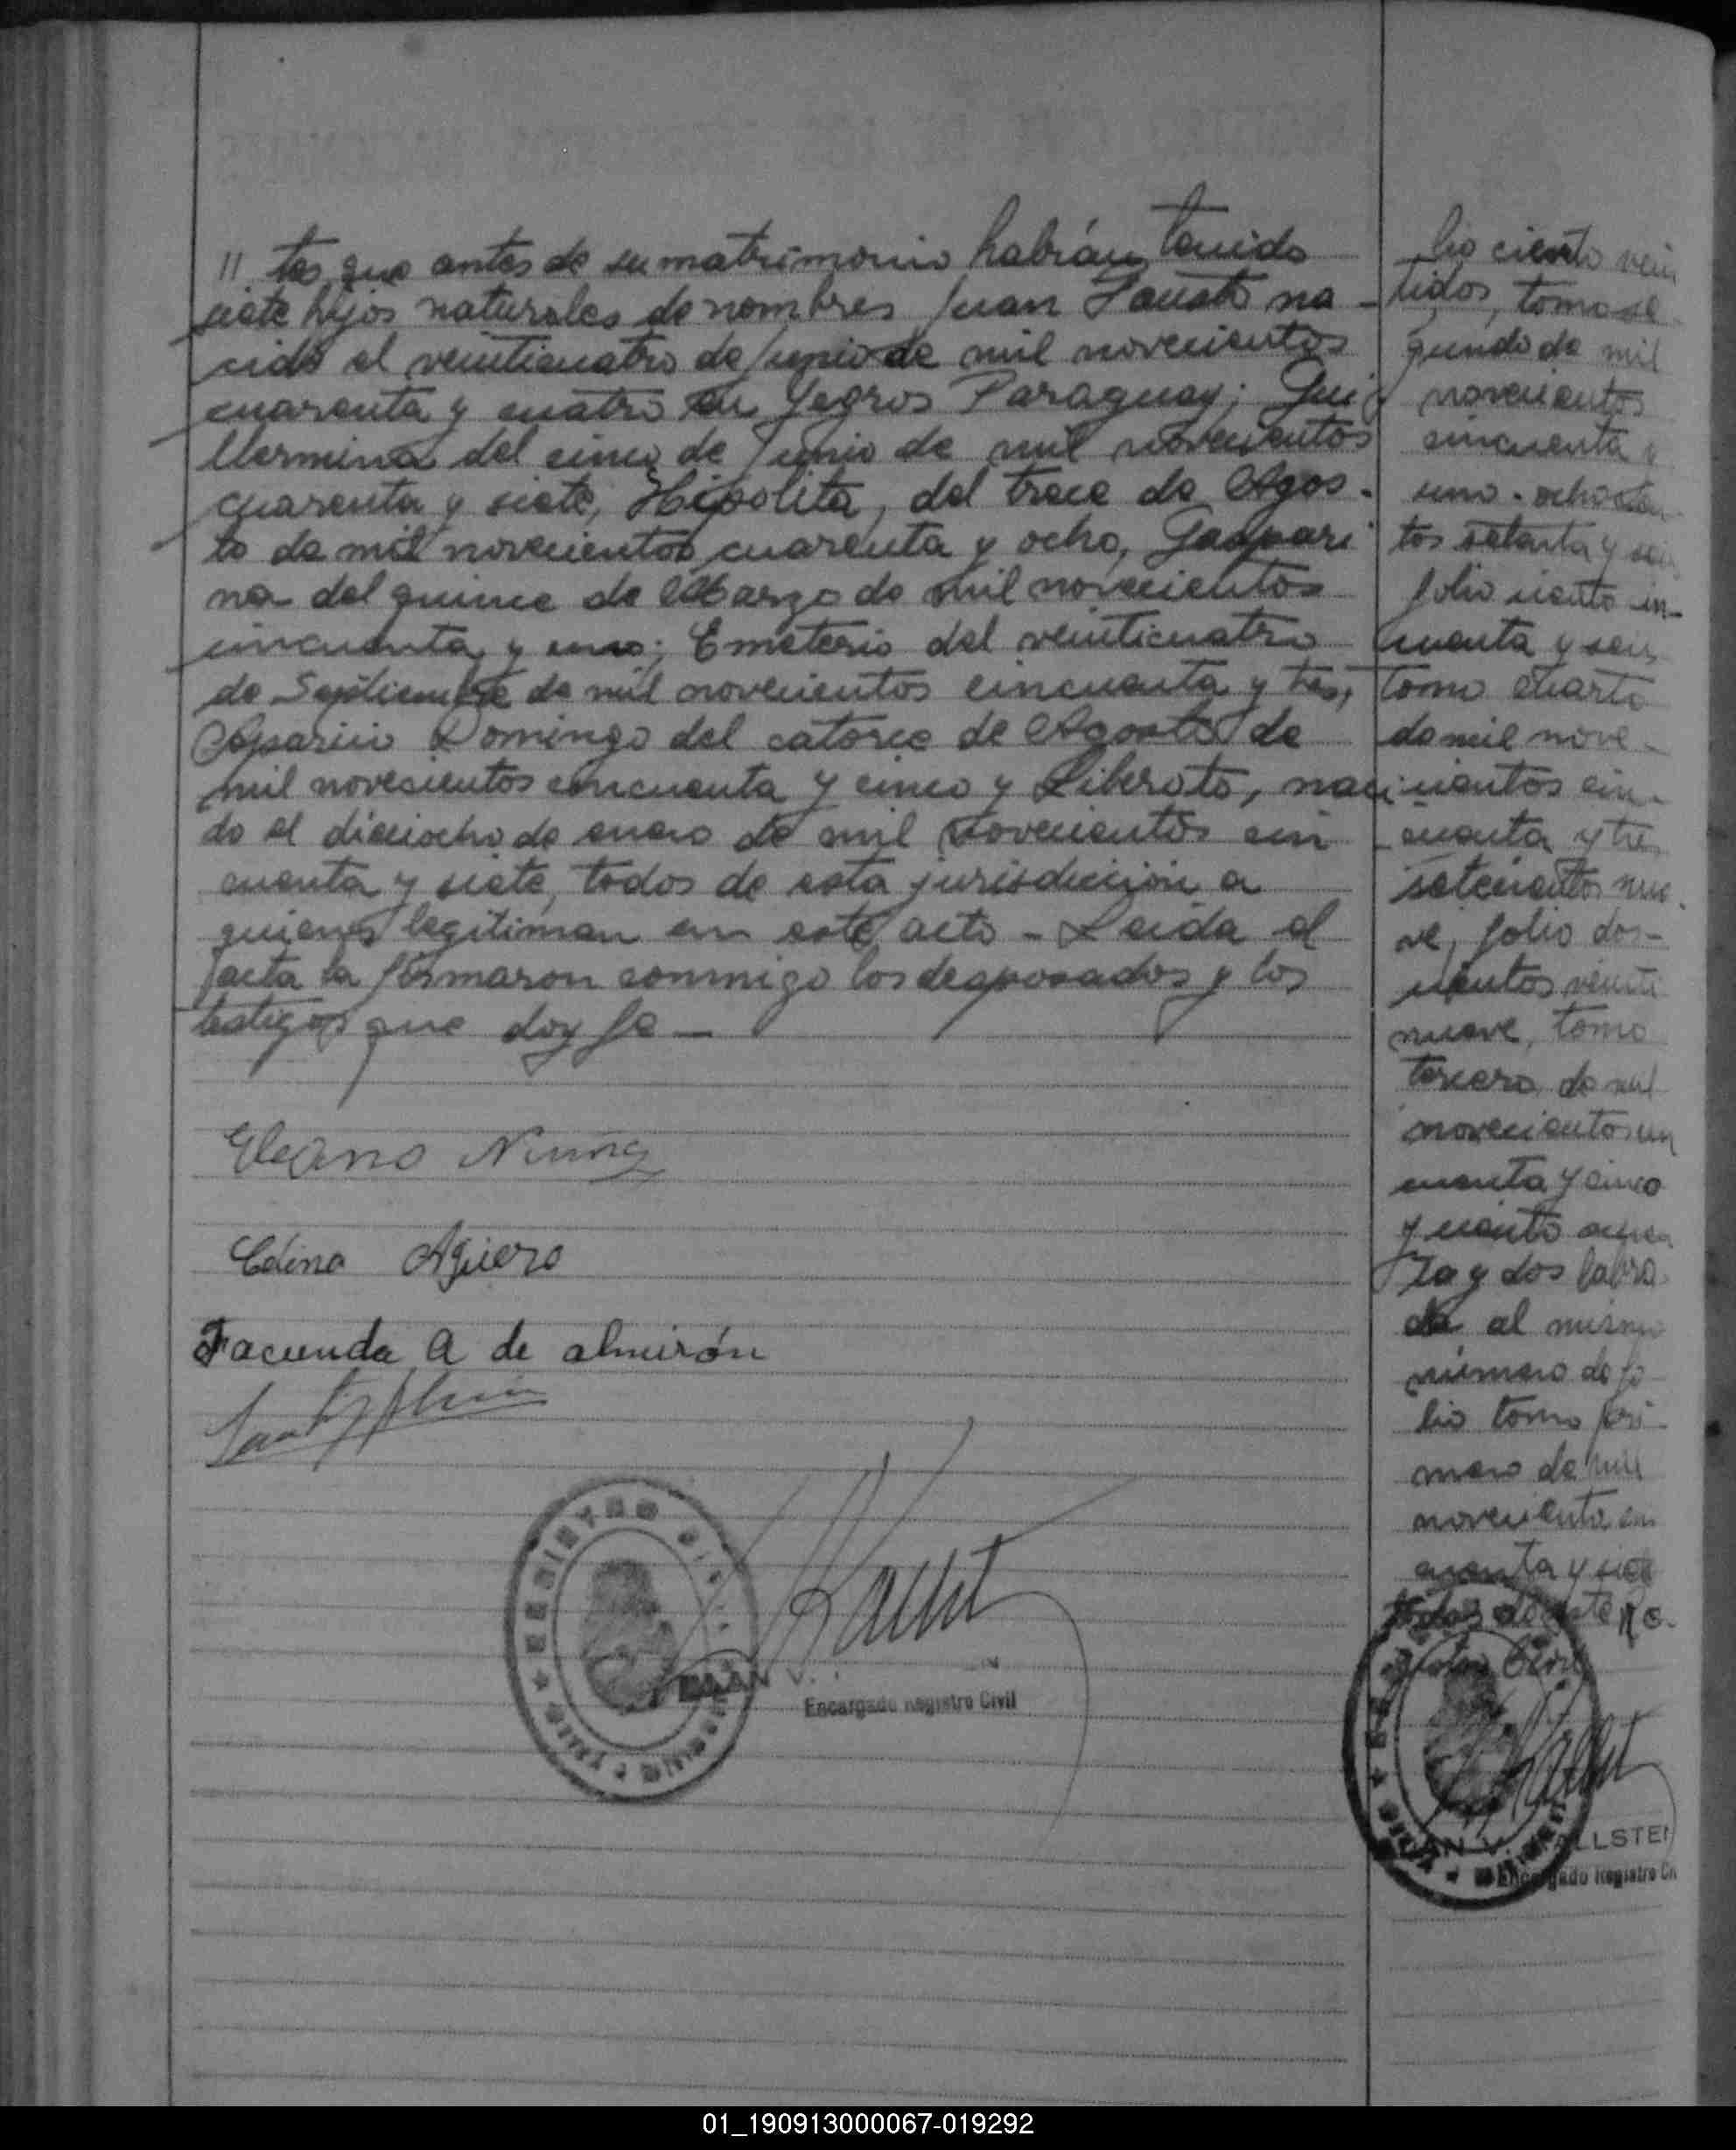 11 tes que antes de su matrimonio habián tenido
siete hijos naturales de nombres Juan Fausto na-
cido el veinticuatro de Junio de mil novecientos
cuarenta y cuatro en Yegros Paraguay; Gui
llermina del cinco de Junio de mil novecientos
cuarenta y siete, Hipolita, del trece de Agos-
to de mil novecientos cuarenta y ocho, Gaspari
na del quince de Marzo de mil novecientos
cincuenta y uno; Emeterio del veinticuatro
de Septiembre de mil novecientos cincuenta y tres,
Aparicio Domingo del catorce de Agosto de
mil novecientos cincuenta y cinco y Liberato, naci
do el dieciocho de enero de mil novecientos cin
cuenta y siete, todos de esta jurisdicción a
quienes legitiman en este acto - Leida el
acta la firmaron conmigo los desposados y los
testigos que doy fe -
Eleano Nuñez
Edina Aguero
Facunda A de almirón
Encargado Registro Civil
lio ciento vein
tidos, tomo se
gundo de mil
novecientos
cincuenta y
uno - ochocien
tos setenta y seis
folio ciento cin-
cuenta y seis
tomo cuarto
de mil nove-
cientos cin-
cuenta y tres
setecientos nue
ve, folio dos-
cientos veinti
nueve, tomo
tercero de mil
novecientos cin
cuenta y cinco
y ciento
ta y dos labra
da al mismo
número de fo
lio tomo pri-
mero de mil
novecientos cin
cuenta y siete
todos de este Re-
gistro Civil
LLSTE
Encargado Registro Ci
01_190913000067-019292